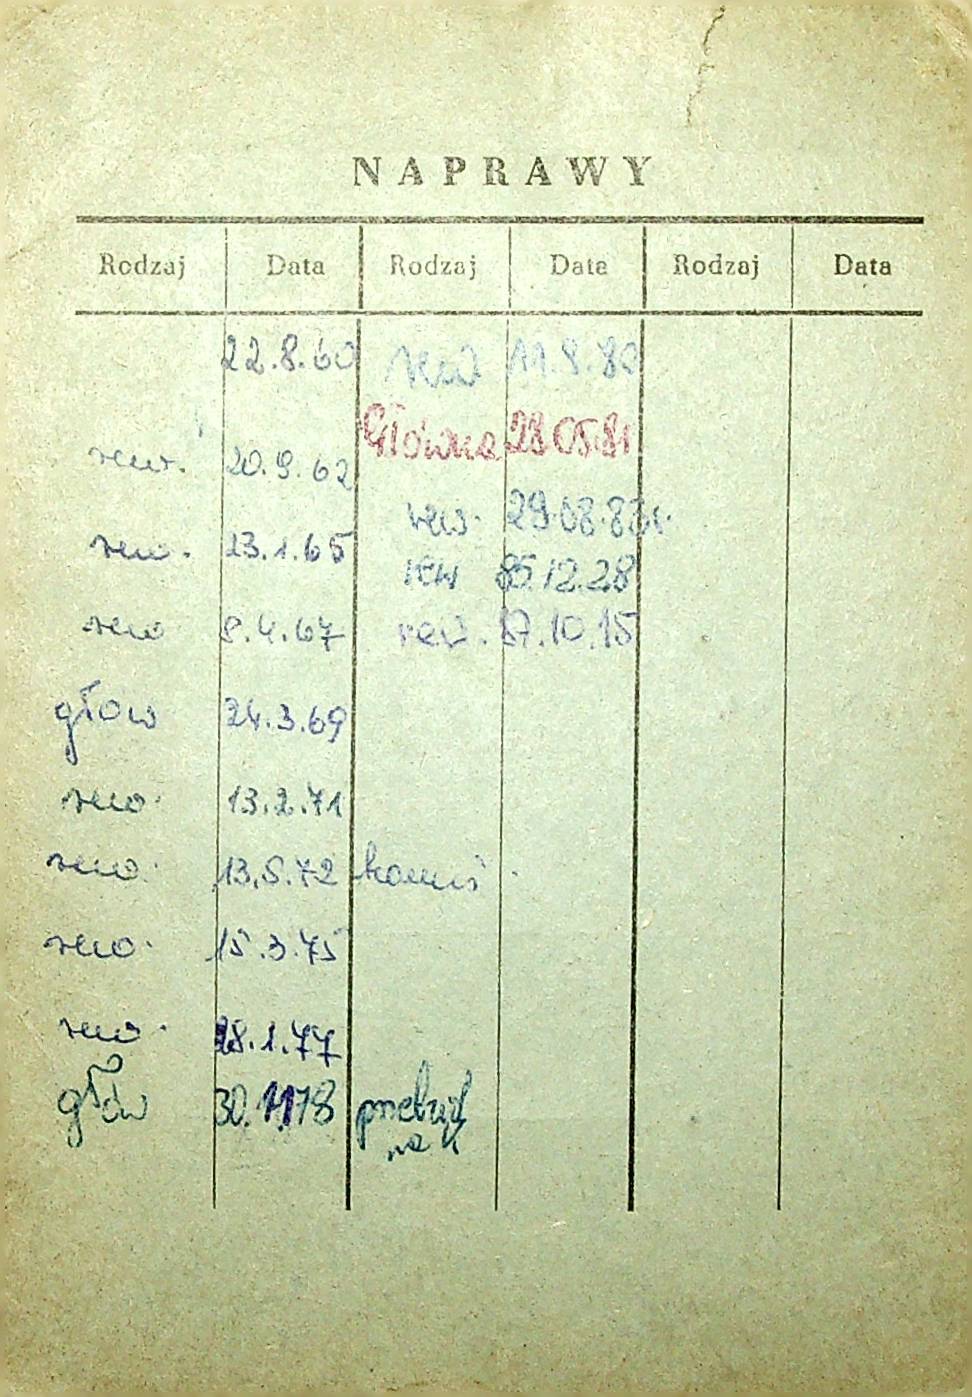 NAPRAWY
Rodzaj Data Rodzaj Data Rodzaj Data
22.8.60 rew 11.8.80
Główna 28 05 81
rew. 20.9.62
rew. 29.08.83r.
rew. 23.1.65
rew 85.12.28
rew 8.4.67 rew. 87.10.15
głow 24.3.69
rew. 13.2.71
rew. 13.5.72
rew. 15.3.75
rew. 28.1.77
głów 30.11.78
na